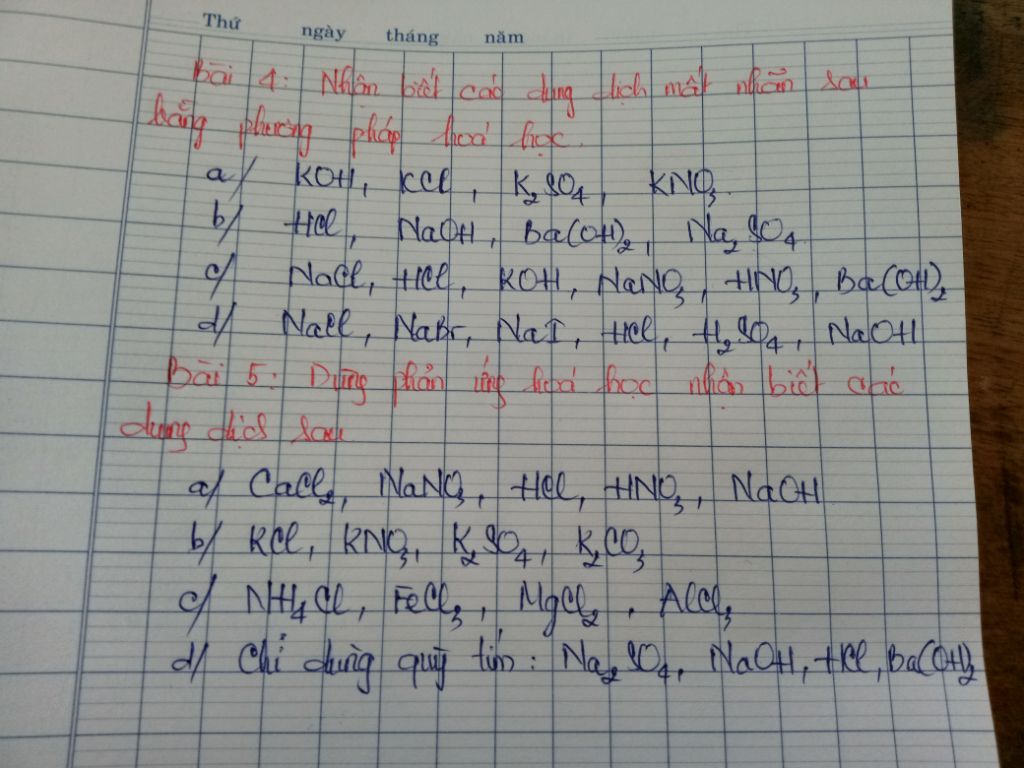 Thứ ngày tháng năm
Bài 4: Nhận biết các dung dịch mất nhãn sau
bằng phương pháp hoá học.
a/ KOH, KCl, K₂SO₄, KNO₃.
b/ HCl, NaOH, Ba(OH)₂, Na₂SO₄
c/ NaCl, HCl, KOH, NaNO₃, HNO₃, Ba(OH)₂
d/ NaCl, NaBr, NaI, HCl, H₂SO₄, NaOH
Bài 5: Dùng phản ứng hoá học nhận biết các
dung dịch sau
a/ CaCl₂, NaNO₃, HCl, HNO₃, NaOH
b/ KCl, KNO₃, K₂SO₄, K₂CO₃
c/ NH₄Cl, FeCl₃, MgCl₂, AlCl₃
d/ Chỉ dùng quỳ tím: Na₂SO₄, NaOH, HCl, Ba(OH)₂